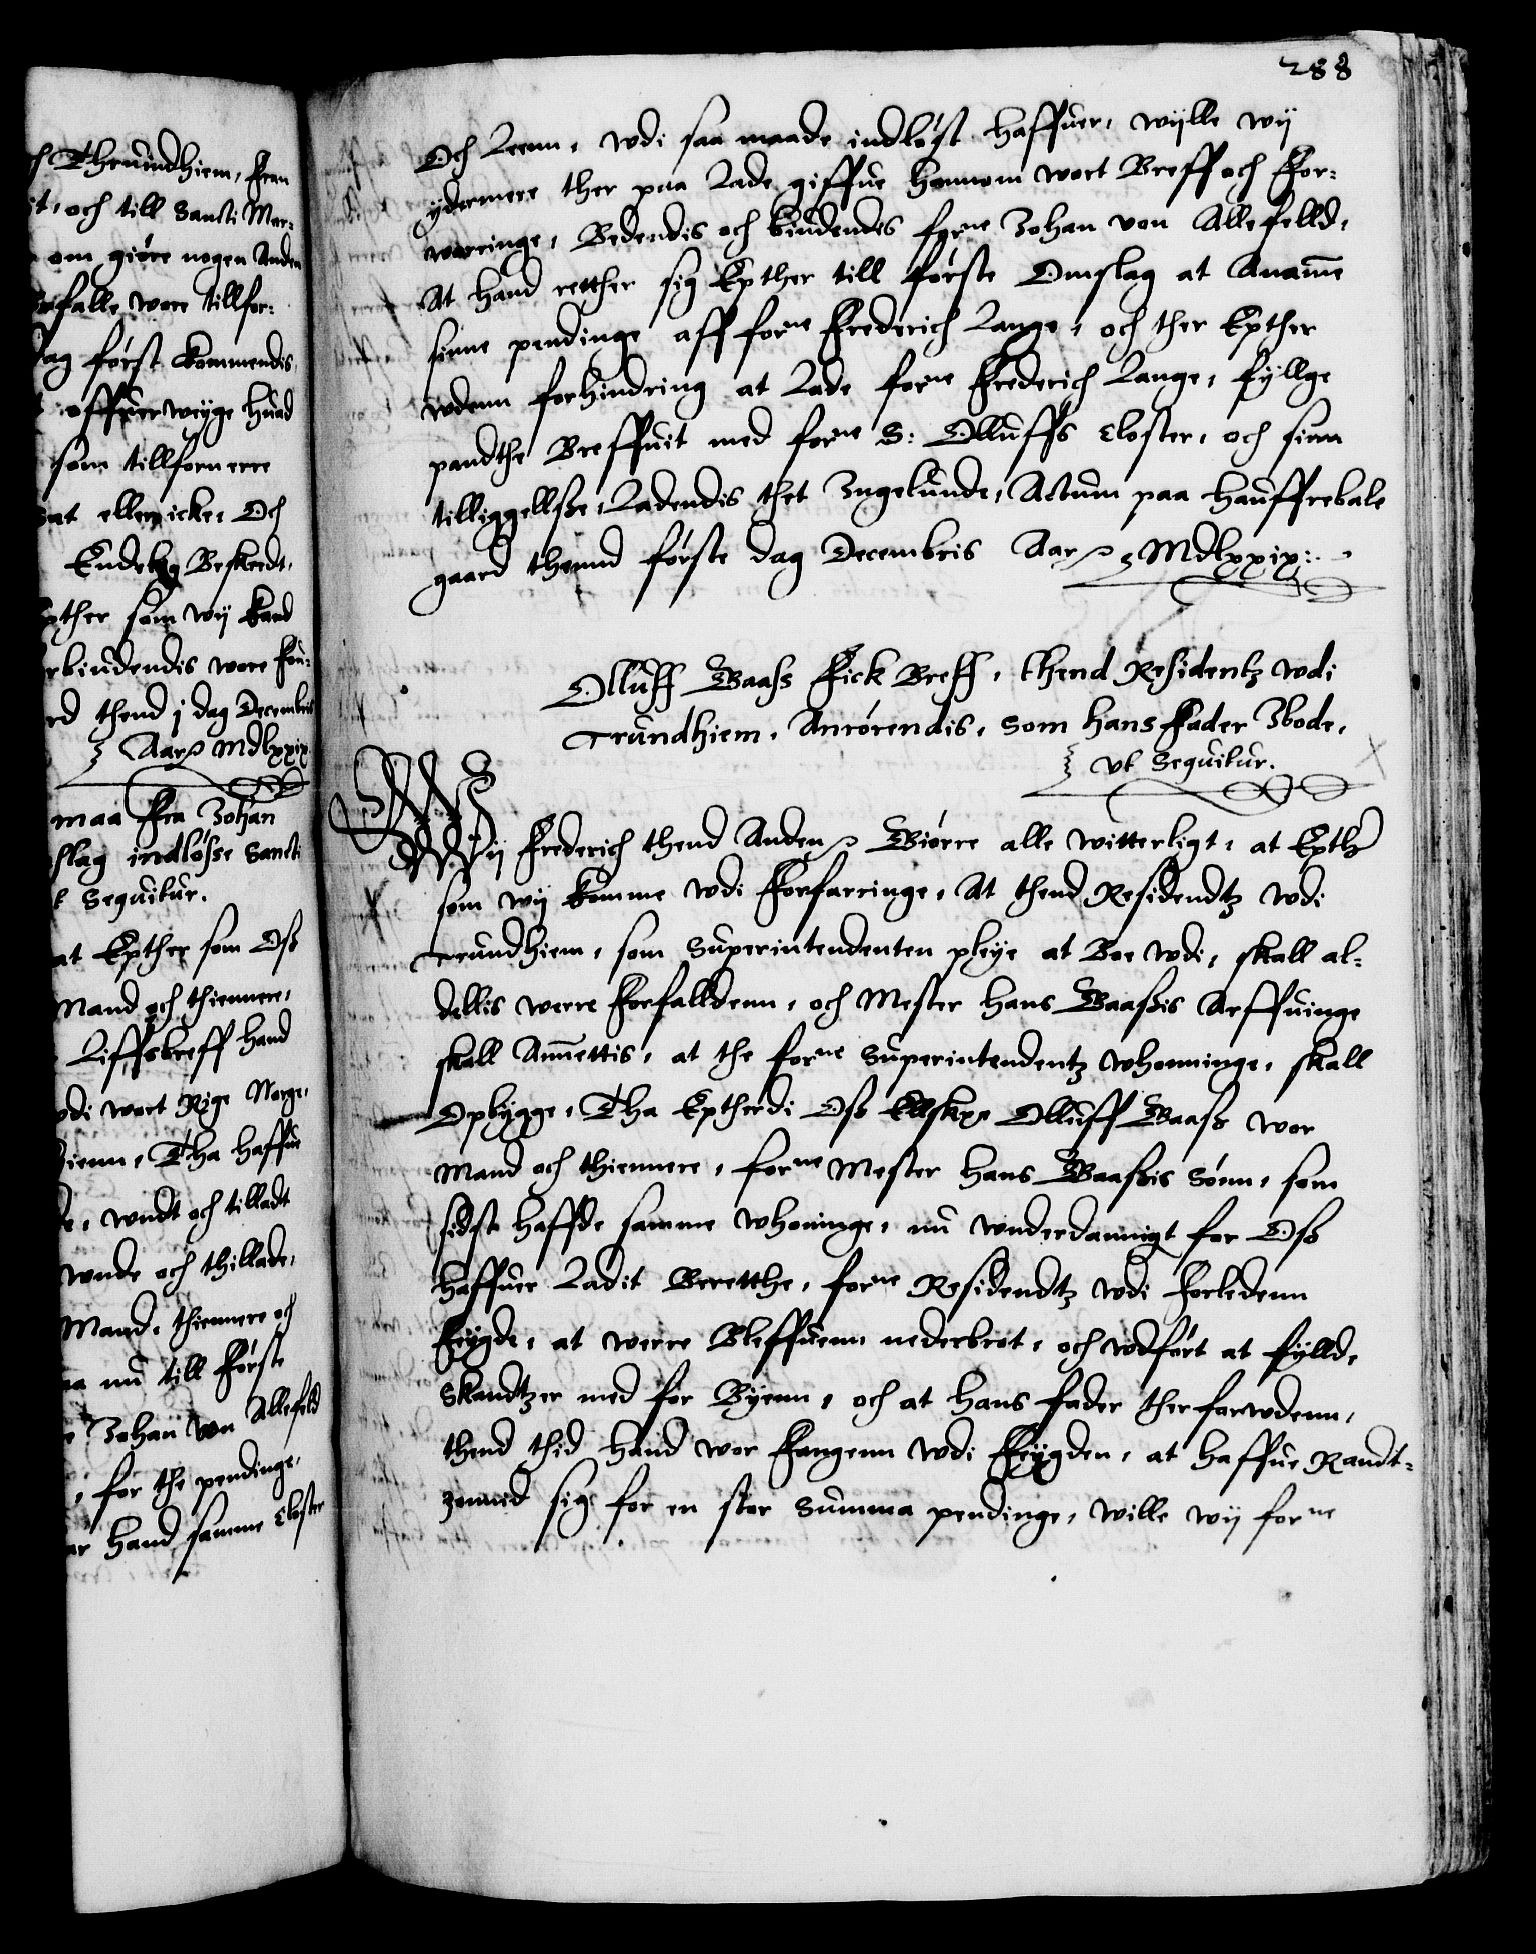 288
Och Leenn, wdi saa maade indløst haffuer, wylle wij
ydermere ther paa Lade giffue hannom wort Breff och For-
warringe, Bedendis och biudendes forne Johan von Allefelld,
At hand retther sig Epther till første Omslag at Anamme
sinne pendinge aff forne Frederich Lange, och ther Epther
wdenn forhindring at Lade forne Frederich Lange, fyllge
pandthe Breffuit med forne S: Olluffs Closter, och sinn
tilliggellsse, Ladendis thet Ingelunde, Actum paa hauffrebale
gaard thennd første dag Decembris Aar Mdlxxix:
Olluff Baass Fick Breff, thend Residentz wdi
Trundhiem, Anrørendis, som hans Fader Ibode,
vt Sequitur.
Wij Frederich thend Anden Giørre alle witterligt, at Epther
som wij komme wdi Forfarringe, At thend Residendtz wdi
Trundhiem, som Superintendenten pleye at Boe wdi, skall al-
delis werre Forfalldenn, och Mester Hans Baassis Arffuinge
skall Anmettis, at the forne Superintendentz whonninge, skall
Opbygge, Tha Eptherdi Oss Ellskr Olluff Baass wor
Mand och thiennere, forne Mester Hans Baassis Sønn, som
sidst haffde samme whoninge, nu wnderdannigt for Oss
haffuer Ladit Beretthe, forne Residendtz wdi forledenn
Feygde, at werre Bleffuenn nederbrot, och wdført at fylld,
Skandtzer med for Byenn, och at hans Fader therforwdenn,
thend thid hand wor Fangenn wdi Feygden, at haffue Randt-
zonnid sig for en stor Summa pendinge, wille wij forne
Thrundhiem, Fran
it, och till Sancti Mar-
om giøre nogen Anden
falle wore tillfor-
dag først kommendis,
offuerweyge huad
som tillfornerre
sat ellr icke, Och
Endelig Beskeedt,
Epther som wij kand
rbiudendis wore Fou-
rd thend j dag Decembris
Aar Mdlxxix
maa Fra Johan
slag indløsse Sancti
t Sequitur.
at Epther som Oss
Mand och thiennere,
Liffsbreff hand
wdi wort Rige Norge,
hienn, Tha haffue
wndt och tilladt
wnde och thillade,
Mand, thiennere och
aa nu till Første
Johan von Allefeld
, for the pendinge,
ar hand samme Closter